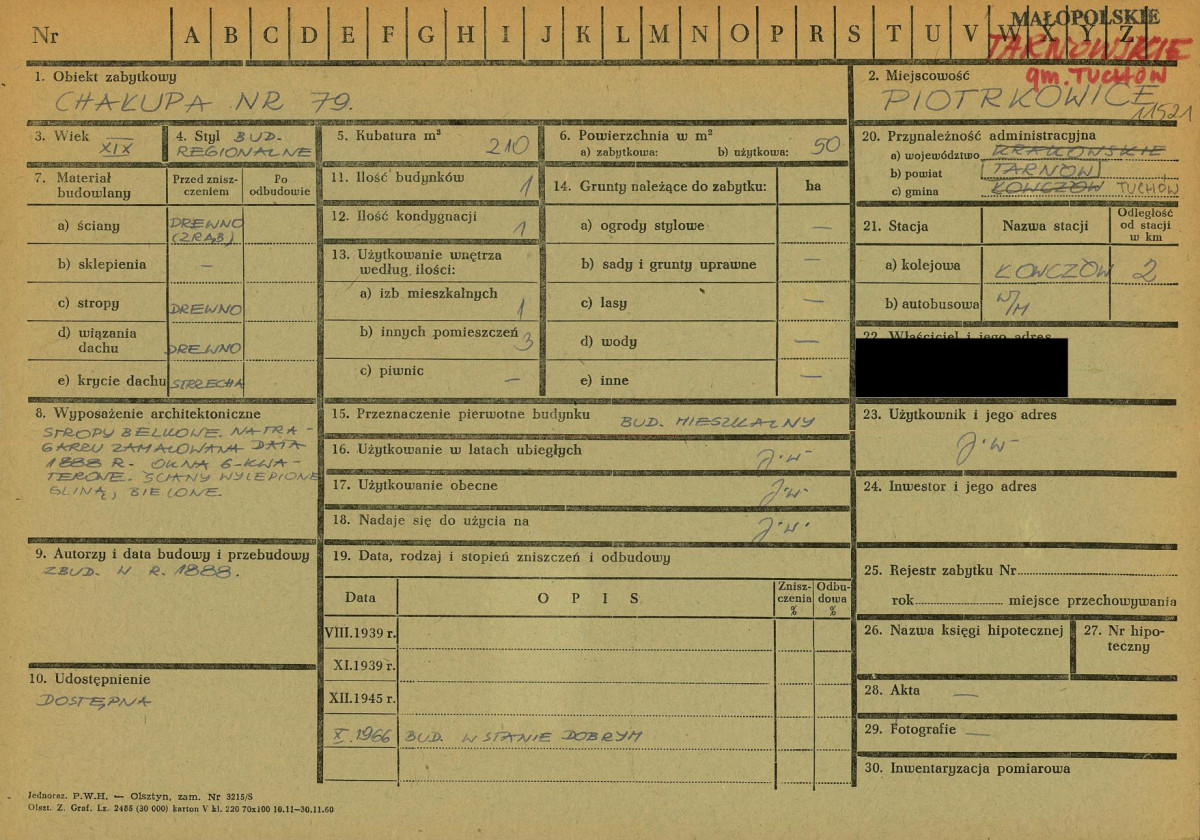 Nr A B C D E F G H I J K L M N O P R S T U V W X Y Z
MAŁOPOLSKIE
TARNOWSKIE
gm. TUCHÓW
1. Obiekt zabytkowy
CHAŁUPA NR 79.
2. Miejscowość
PIOTRKOWICE
11521
3. Wiek
XIX
4. Styl BUD.
REGIONALNE
5. Kubatura m³
210
6. Powierzchnia w m²
a) zabytkowa: b) użytkowa: 50
7. Materiał budowlany
Przed zniszczeniem
Po odbudowie
a) ściany DREWNO
(ZRĄB)
b) sklepienia —
c) stropy DREWNO
d) wiązania dachu DREWNO
e) krycie dachu STRZECHA
8. Wyposażenie architektoniczne
STROPY BELKOWE. NA TRA-
GARZU ZAMALOWANA DATA
1888 R. OKNA 6-KWA-
TEROWE. ŚCIANY WYLEPIONE
GLINĄ, BIELONE.
9. Autorzy i data budowy i przebudowy
ZBUD. W R. 1888.
10. Udostępnienie
DOSTĘPNA
11. Ilość budynków 1
12. Ilość kondygnacji 1
13. Użytkowanie wnętrza
według ilości:
a) izb mieszkalnych 1
b) innych pomieszczeń 3
c) piwnic —
14. Grunty należące do zabytku: ha
a) ogrody stylowe —
b) sady i grunty uprawne —
c) lasy —
d) wody —
e) inne —
15. Przeznaczenie pierwotne budynku BUD. MIESZKALNY
16. Użytkowanie w latach ubiegłych j.w.
17. Użytkowanie obecne j.w.
18. Nadaje się do użycia na j.w.
19. Data, rodzaj i stopień zniszczeń i odbudowy
Data OPIS Zniszczenia % Odbudowa %
VIII.1939 r.
XI.1939 r.
XII.1945 r.
X.1966 BUD. W STANIE DOBRYM
20. Przynależność administracyjna
a) województwo KRAKOWSKIE
b) powiat TARNÓW
c) gmina ŁOWCZÓW TUCHÓW
21. Stacja Nazwa stacji Odległość od stacji w km
a) kolejowa ŁOWCZÓW 2
b) autobusowa W/M
22. Właściciel i jego adres
23. Użytkownik i jego adres
j.w.
24. Inwestor i jego adres
25. Rejestr zabytku Nr
rok miejsce przechowywania
26. Nazwa księgi hipotecznej
27. Nr hipoteczny
28. Akta —
29. Fotografie —
30. Inwentaryzacja pomiarowa
Jednoraz. P.W.H. — Olsztyn, zam. Nr 3215/S
Olszt. Z. Graf. Lz. 2485 (30 000) karton V kl. 220 70x100 10.11—30.11.60